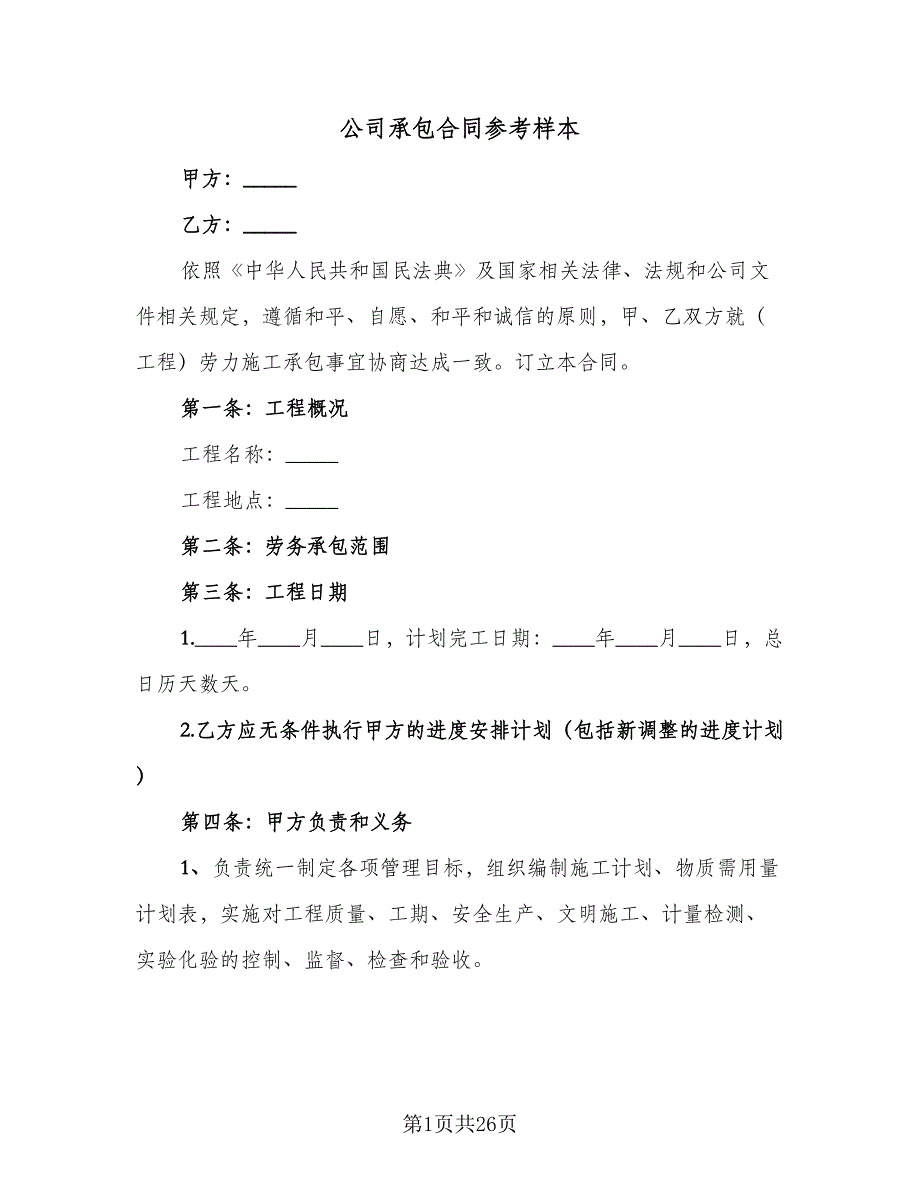 公司承包合同参考样本
甲方：_____
乙方：_____
依照《中华人民共和国民法典》及国家相关法律、法规和公司文
件相关规定，遵循和平、自愿、和平和诚信的原则，甲、乙双方就（
工程）劳力施工承包事宜协商达成一致。订立本合同。
第一条：工程概况
工程名称：_____
工程地点：_____
第二条：劳务承包范围
第三条：工程日期
1.____年____月____日，计划完工日期：____年____月____日，总
日历天数天。
2.乙方应无条件执行甲方的进度安排计划（包括新调整的进度计划
）
第四条：甲方负责和义务
1、负责统一制定各项管理目标，组织编制施工计划、物质需用量
计划表，实施对工程质量、工期、安全生产、文明施工、计量检测、
实验化验的控制、监督、检查和验收。
第1页共26页